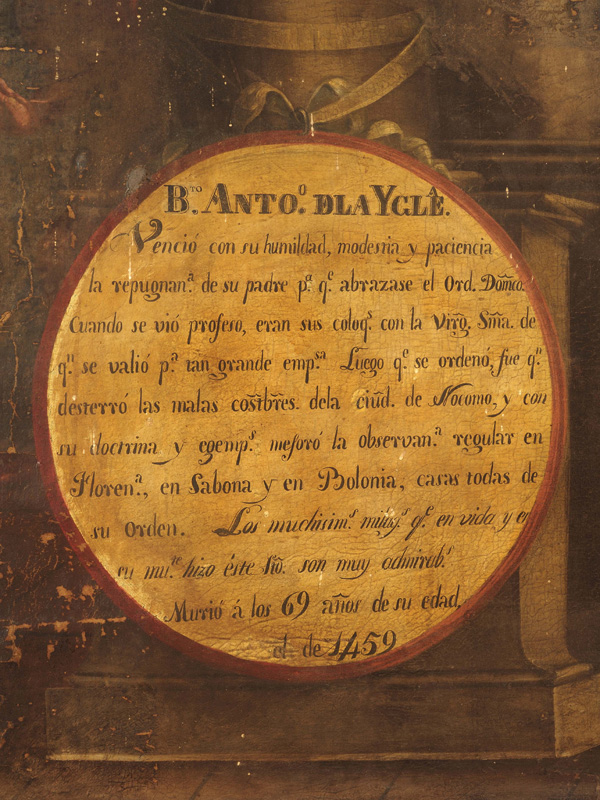 B.ᵗᵒ ANTO.º DLA YGLÊ.
Venció con su humildad, modestia y paciencia
la repugnan.ª de su padre p.ª q.ᵉ abrazase el Ord. Dom̃co.
Cuando se vió profeso, eran sus coloq.ˢ con la Virg̃. Sm̃a. de
q.ⁿ se valió p.ª tan grande emp.ˢᵃ Luego q.ᵉ se ordenó, fue q.ⁿ
desterró las malas cost̃br̃es. dela ciud̃. de Nocomo, y con
su doctrina y egemp.ˢ mejoró la observan.ª regular en
Floren.ª, en Sabona y en Bolonia, casas todas de
su Orden. Los muchisim.ˢ milag.ˢ q.ᵉ en vida y en
su mu.ᵗᵉ hizo éste Sto. son muy admirab.ˢ
Murió á los 69 años de su edad,
el de 1459